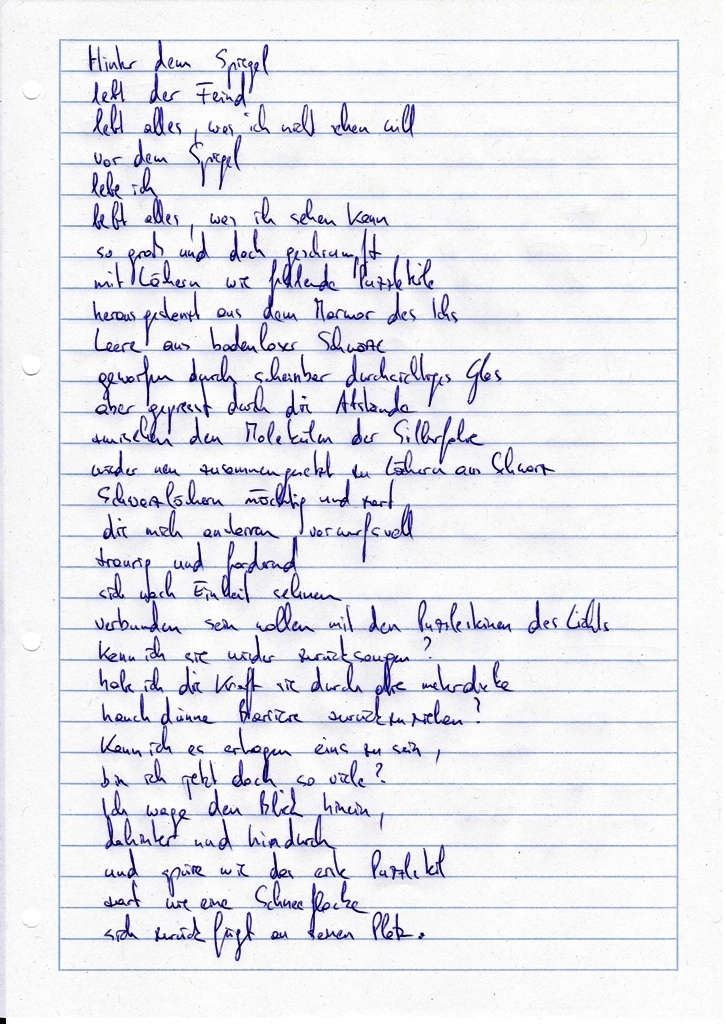 Hinter dem Spiegel
lebt der Feind
lebt alles, was ich nicht sehen will
vor dem Spiegel
lebe ich
lebt alles, was ich sehen kann
so groß und doch geschrumpft
mit Löchern wie fehlende Puzzleteile
herausgestanzt aus dem Marmor des Ichs
Leere aus bodenloser Schwärze
geworfen durch scheinbar durchsichtiges Glas
aber gepresst durch die Abstände
zwischen den Molekülen der Silberfolie
wieder neu zusammengesetzt zu Löchern aus Schwarz
Schwarzlöchern mächtig und zart
die mich anstarren vorwurfsvoll
traurig und fordernd
sich nach Einheit sehnen
verbunden sein wollen mit den Puzzlesteinen des Lichts
Kann ich sie wieder zurücksaugen?
habe ich die Kraft sie durch die meterdicke
hauchdünne Barriere zurückzuziehen?
Kann ich es ertragen eins zu sein,
bin ich jetzt doch so viele?
Ich wage den Blick hinein,
dahinter und hindurch
und spüre wie das erste Puzzleteil
zart wie eine Schneeflocke
sich zurück fügt an seinen Platz.